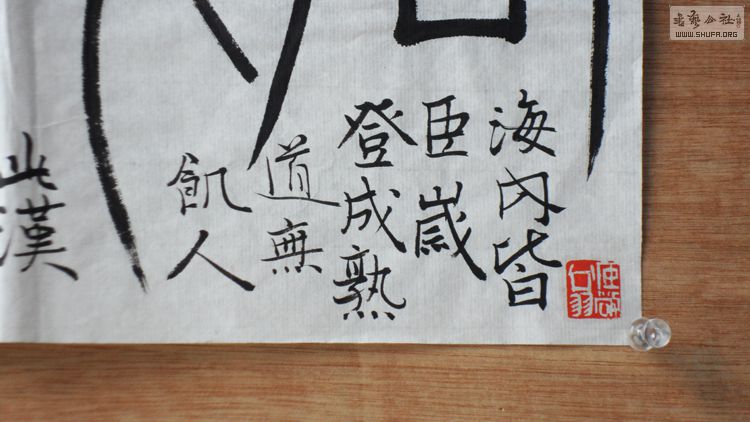 海内皆
臣歳
登成熟
道無
飢人
此漢
書艺公社
WWW.SHUFA.ORG